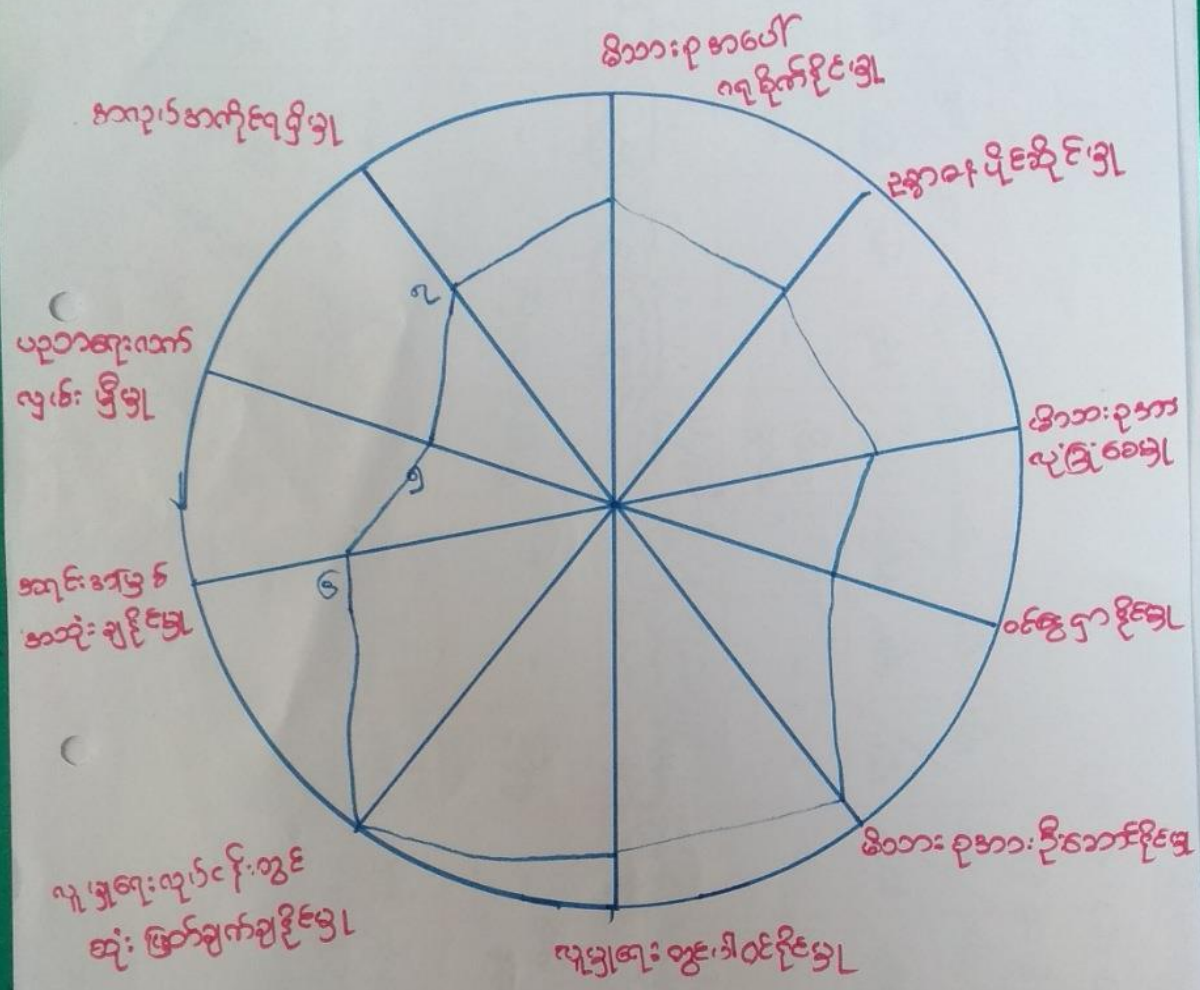 မိသားစုအပေါ်
ဂရုစိုက်နိုင်မှု
ဥစ္စာဓနပိုင်ဆိုင်မှု
မိသားစုအား
လုံခြုံစေမှု
ဝင်ငွေရှာနိုင်မှု
မိသားစုအားဦးဆောင်နိုင်မှု
လူမှုရေးတွင်ပါဝင်နိုင်မှု
လူမှုရေးလုပ်ငန်းတွင်
ဆုံးဖြတ်ချက်ချနိုင်မှု
အရင်းအမြစ်
အသုံးချနိုင်မှု
၆
ပညာရေးလက်
လှမ်းမှီမှု
၅
အလုပ်အကိုင်ရရှိမှု
၇